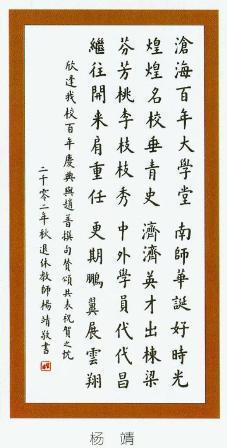 滄海百年大學堂 南師華誕好時光
煌煌名校垂青史 濟濟英才出棟梁
芬芳桃李枝枝秀 中外學員代代昌
繼往開来肩重任 更期鵬翼展雲翔
欣逢我校百年慶典與趙普撰句贊頌共表祝賀之忱
二千零二年秋退休教師楊靖敬書
杨 靖